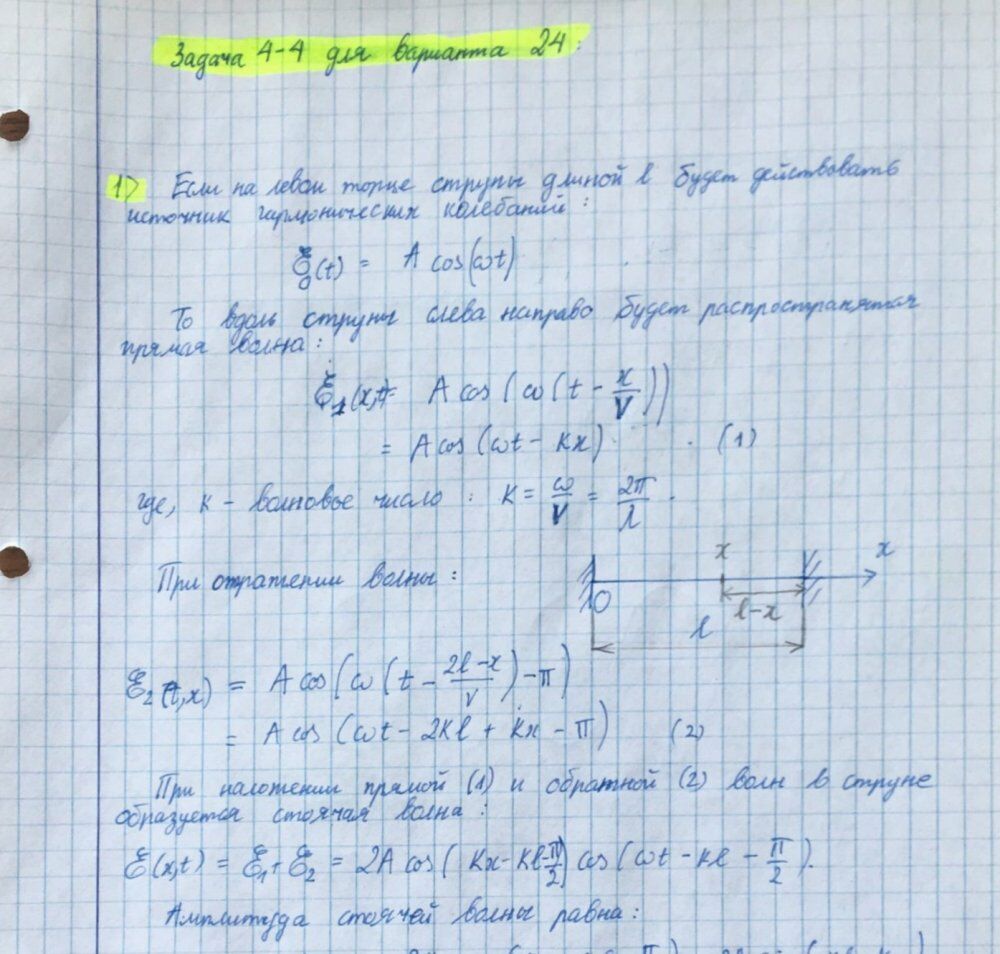 Задача 4-4 для варианта 24:
1) Если на левом торце струны длиной l будет действовать
источник гармонических колебаний:
ξ₀(t) = A cos(ωt)
То вдоль струны слева направо будет распространятся
прямая волна:
ξ₁(x,t) = A cos(ω(t - x/V))
= A cos(ωt - kx) . (1)
где, k - волновое число : k = ω/V = 2π/λ .
При отражении волны :
x x
O l-x
l
ξ₂(t,x) = A cos(ω(t - (2l-x)/V) - π)
= A cos(ωt - 2kl + kx - π) (2)
При наложении прямой (1) и обратной (2) волн в струне
образуется стоячая волна :
ξ(x,t) = ξ₁ + ξ₂ = 2A cos(kx - kl - π/2) cos(ωt - kl - π/2).
Амплитуда стоячей волны равна :